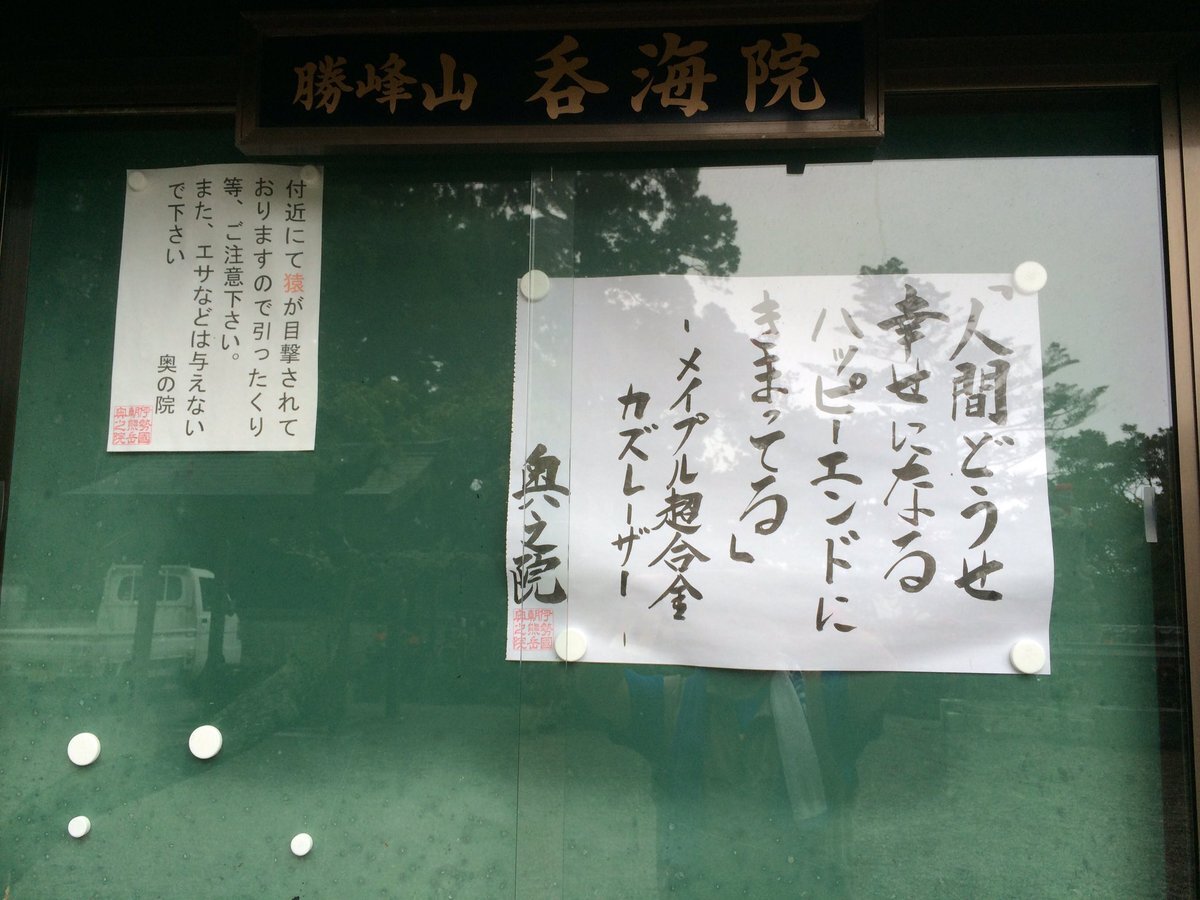 勝峰山 呑海院
「人間どうせ
幸せになる
ハッピーエンドに
きまってる」
-メイプル超合金
カズレーザー-
奥之院
伊勢國
朝熊岳
奥之院
付近にて猿が目撃されて
おりますので引ったくり
等、ご注意下さい。
また、エサなどは与えない
で下さい
奥の院
伊勢國
朝熊岳
奥之院